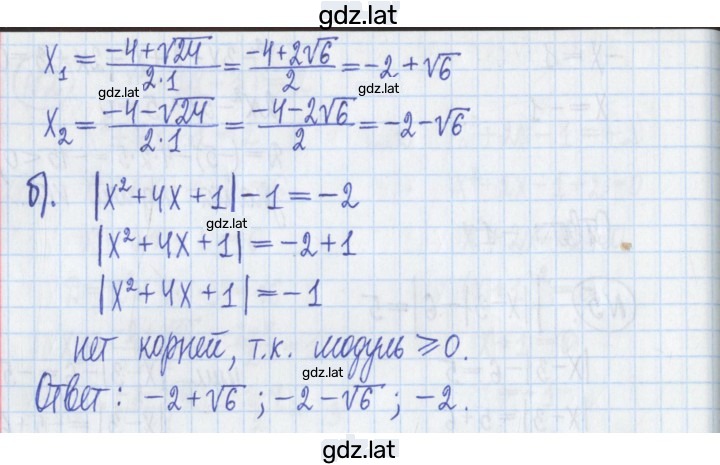 gdz.lat
X₁ = (-4+√24)/(2·1) = (-4+2√6)/2 = -2+√6
gdz.lat
X₂ = (-4-√24)/(2·1) = (-4-2√6)/2 = -2-√6
б). |X²+4X+1|-1=-2
gdz.lat
|X²+4X+1|=-2+1
|X²+4X+1|=-1
нет корней, т.к. модуль ⩾0.
gdz.lat
Ответ: -2+√6; -2-√6; -2.
gdz.lat